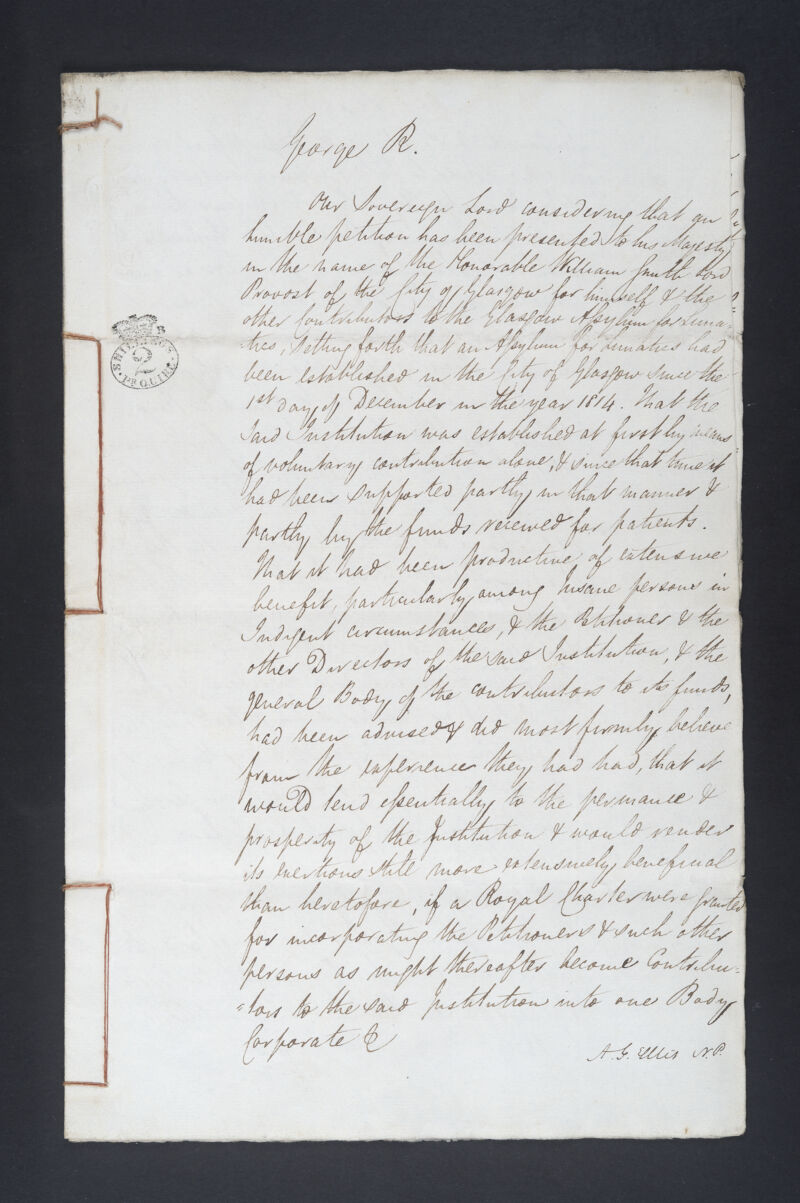 George R.
Our Sovereign Lord considering that an
humble petition has been presented to his Majesty
in the name of the Honorable William Smith Lord
Provost of the City of Glasgow for himself & the
other Contributors to the Glasgow Asylum for Luna-
tics, Setting forth that an Asylum for lunatics had
been established in the City of Glasgow since the
1st day of December in the year 1814. That the
said Institution was established at first by means
of voluntary contribution alone, & since that time it
had been supported partly in that manner &
partly by the funds received for patients.
That it had been productive of extensive
benefit, particularly among Insane persons in
Indigent circumstances, & the Petitioner & the
other Directors of the said Institution, & the
general Body of the contributors to its funds,
had been advised & did most firmly believe
from the experience they had had, that it
would tend essentially to the permance &
prosperity of the Institution & would render
its exertions still more extensively beneficial
than heretofore, if a Royal Charter were granted
for incorporating the Petitioners & such other
persons as might thereafter become Contribu-
=tors to the said Institution into one Body
Corporate &
A. G. Ellis N.P.
2